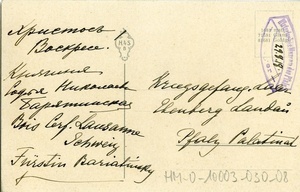 Христосъ
Воскресе.
Княгиня
Софья Николаевна
Барятинская
Bois Cerf. Lausanne
Schweiz
Fürstin Bariatinsky
Kriegsgefang. Lager
Ebenberg Landau
Pfalz Palatinat
HM-0-10003-030-08